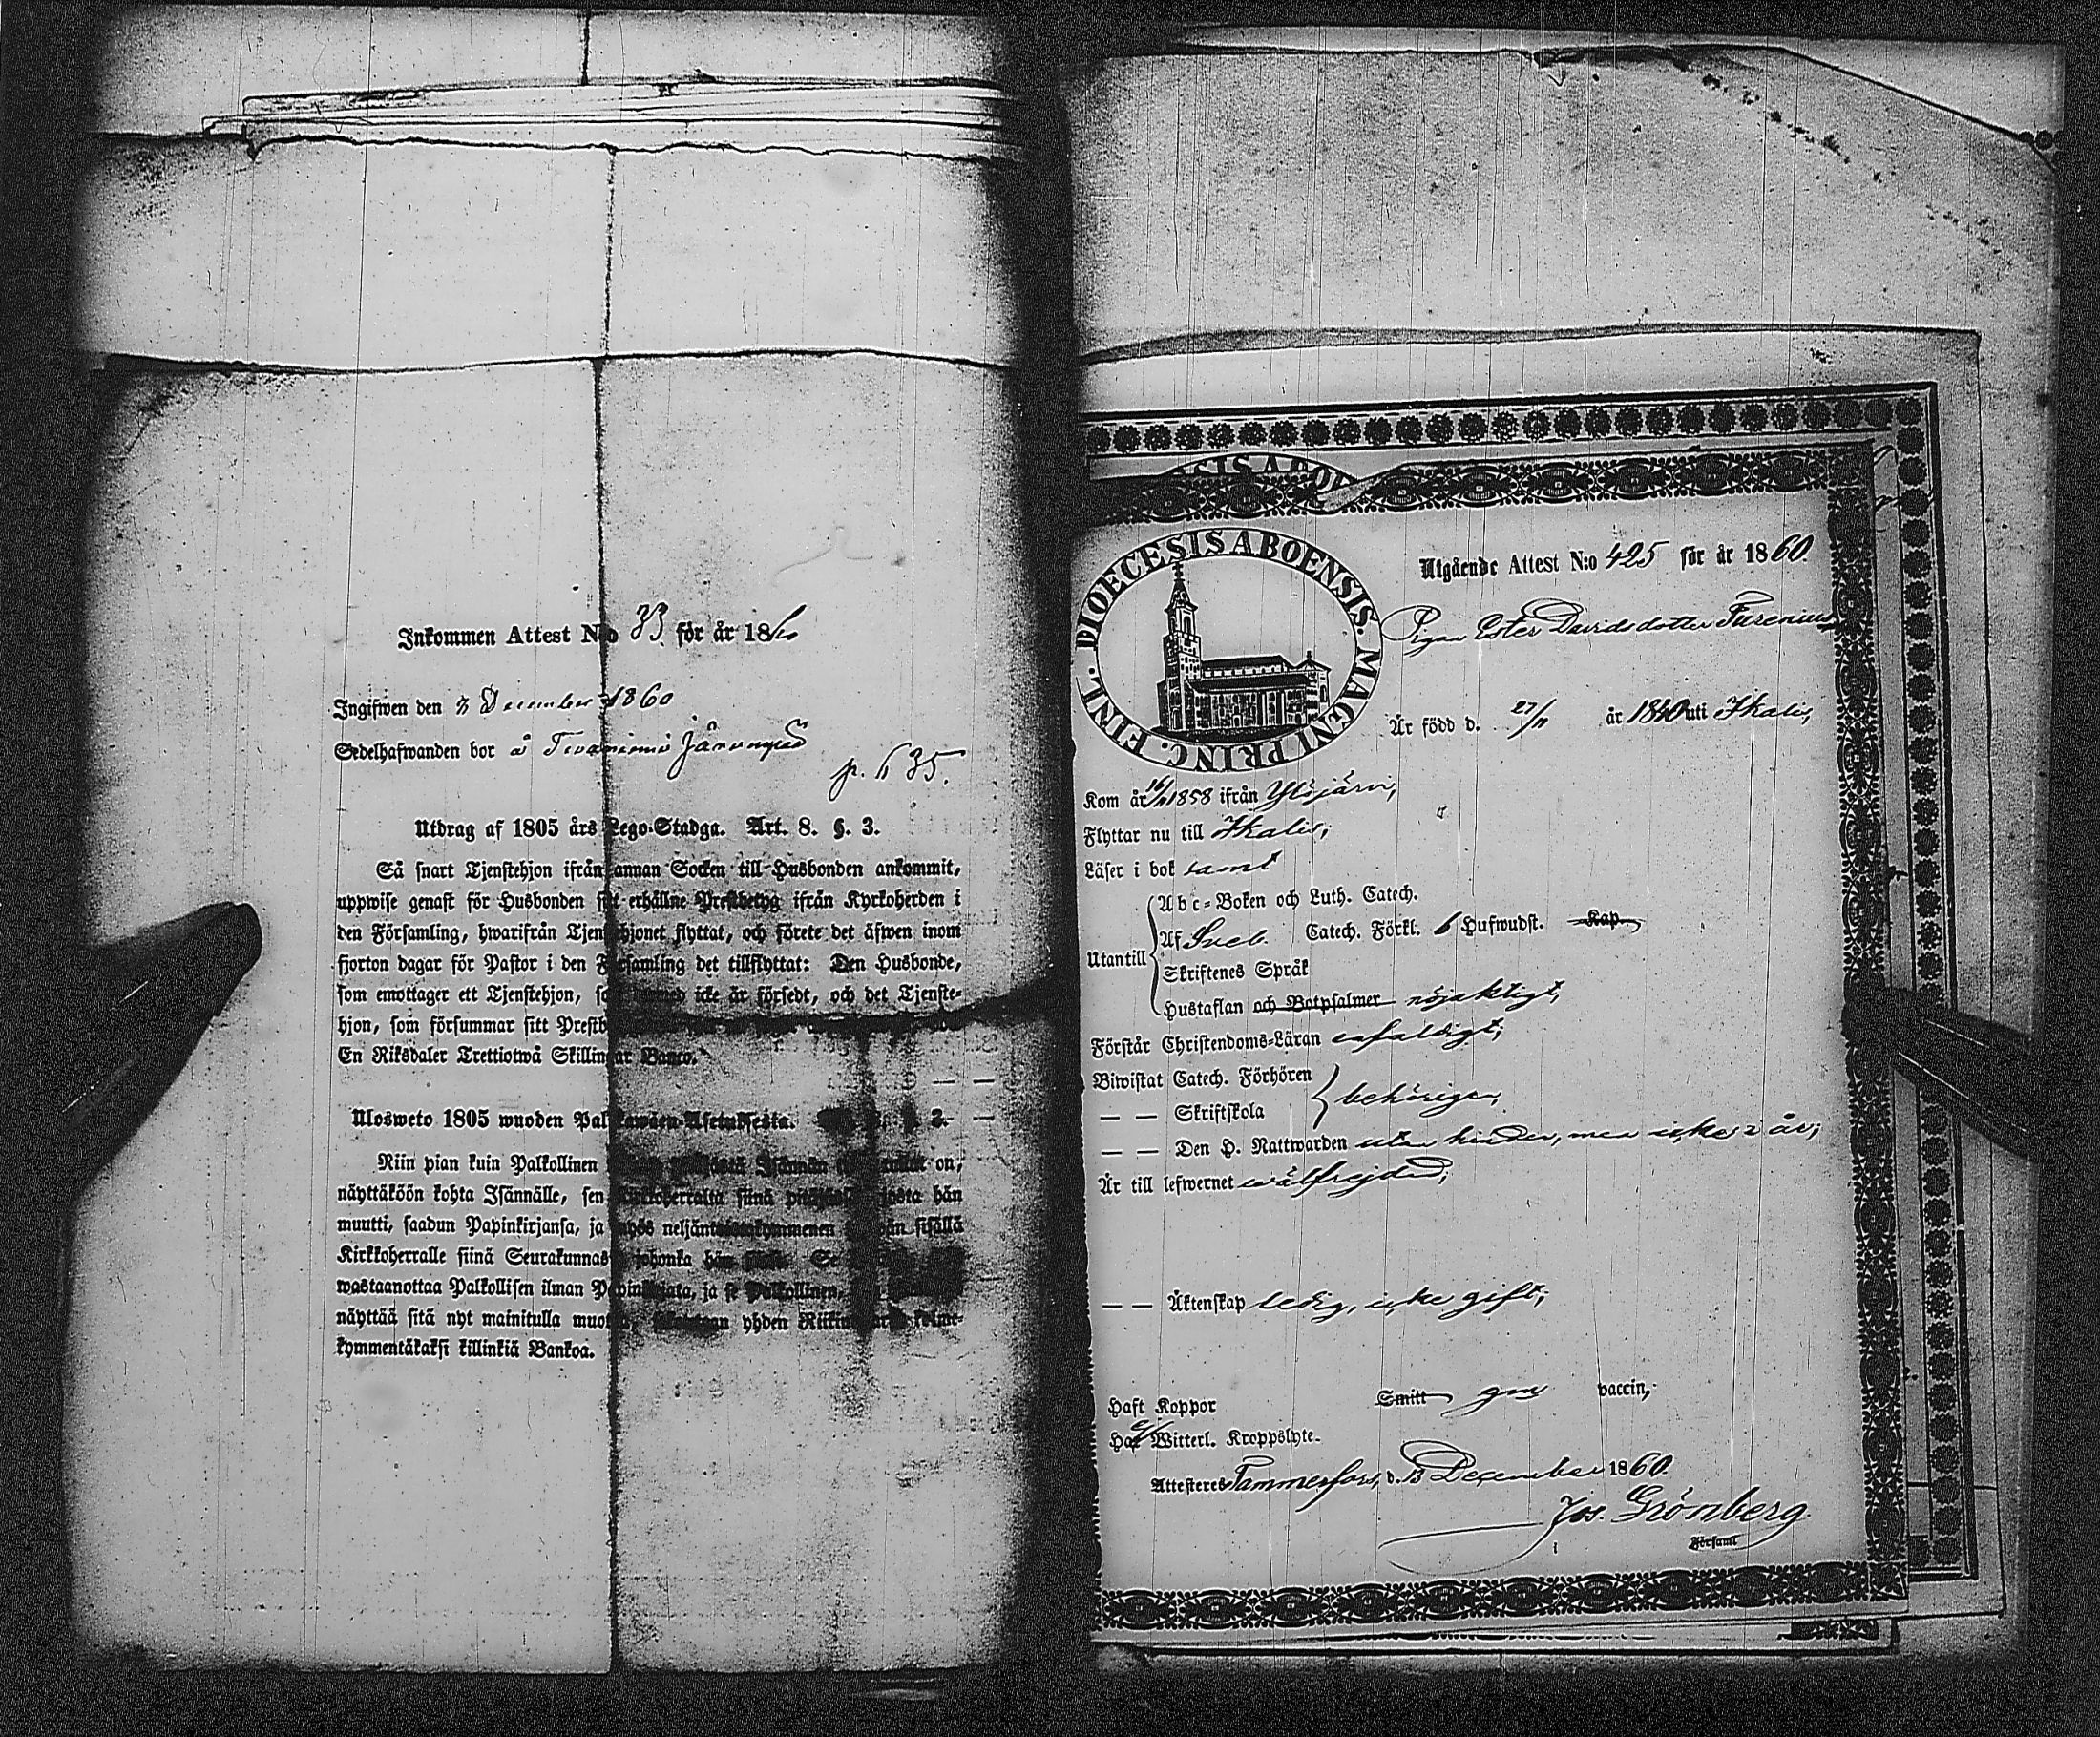 Inkommen Attest No 33 för år 1860
Ingifwen den 8 December 1860
Sedelhafwanden bor å
p. 635.
Utdrag af 1805 års Lego-Stadga. Art. 8. §. 3.
Så snart Tjenstehjon ifrån annan Socken till Husbonden ankommit,
uppwise genast för Husbonden sitt erhållne Prestbetyg ifrån Kyrkoherden i
den Församling, hwarifrån Tjenstehjonet flyttat, och förete det äfwen inom
fjorton dagar för Pastor i den Församling det tillflyttat: Den Husbonde,
som emottager ett Tjenstehjon, som icke är försedt, och det Tjenste-
hjon, som försummar sitt
En Riksdaler Trettiotwå Skillingar Banco.
Ulosweto 1805 wuoden Palkkawäen-Asetuksesta. 3.
Niin pian kuin Palkollinen Isännän on,
näyttäköön kohta Isännälle, sen Kirkkoherralta siinä josta hän
muutti, saadun Papinkirjansa, ja myös neljäntoistakymmenen sisällä
Kirkkoherralle siinä Seurakunnas johonka hän
wastaanottaa Palkollisen ilman Papinkirjata, ja se Palkollinen,
näyttää sitä nyt mainitulla muotoa, yhden kolme-
kymmentäkaksi killinkiä Bankoa.
SIS ABO
DIOECESIS ABOENSIS. MAGNI PRINC. FINL.
Utgående Attest N:o 425 för år 1860.
Pigan Ester Davidsdotter Furenius
Är född d. 27/11 år 1840 uti Ikalis,
Kom år 16/11 1858 ifrån Ylöjärvi,
Flyttar nu till Ikalis;
Läser i bok samt
Utantill
Abc-Boken och Luth. Catech.
Af Sveb. Catech. Förkl. 6 Hufwudst. Kap.
Skriftenes Språk
Hustaflan och Botpsalmer nöjaktigt,
Förstår Christendoms-Läran enfaldigt;
Biwistat Catech. Förhören
— — Skriftskola behörigen,
— — Den H. Nattwarden utan hinder, men icke 2 år;
Är till lefwernet wälfrejdad;
— — Äktenskap ledig, icke gift;
Haft Koppor Smitt gm vaccin,
Har Witterl. Kroppslyte.
Attesteres Tammerfors, d. 13 December 1860.
Jos. Grönberg.
i Församl